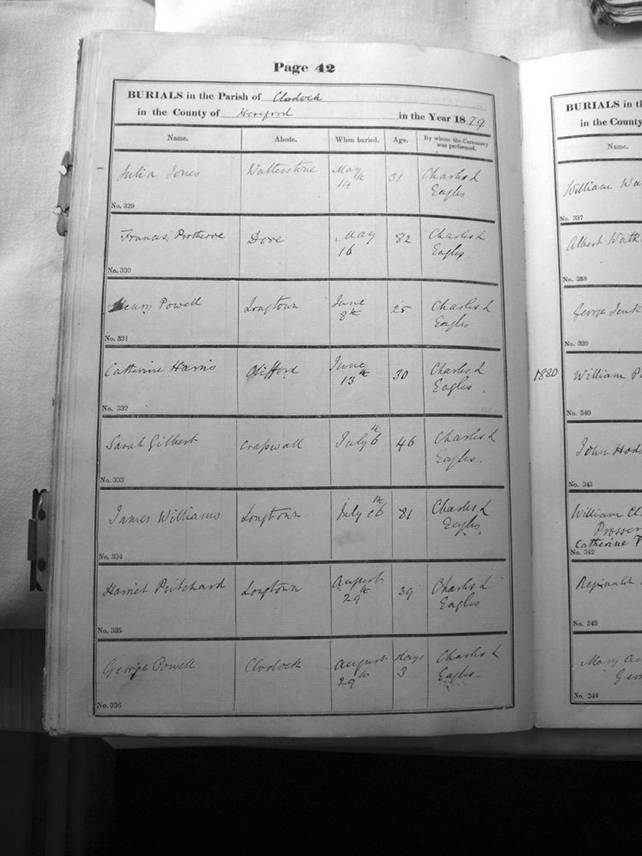 Page 42
BURIALS in the Parish of Clodock
in the County of Hereford in the Year 1879
Name. Abode. When buried. Age. By whom the Ceremony was performed.
Julia Jones Walterstone May 14th 31 Charles L Eagles
No. 329
Francis Protheroe Dore May 16 82 Charles L Eagles
No. 330
Henry Powell Longtown June 8th 25 Charles L Eagles
No. 331
Catherine Harris Clifford June 13th 30 Charles L Eagles
No. 332
Sarah Gilbert Craswall July 6th 46 Charles L Eagles
No. 333
James Williams Longtown July 16th 81 Charles L Eagles
No. 334
Harriet Pritchard Longtown August 29th 39 Charles L Eagles
No. 335
George Powell Clodock August 29th days 3 Charles L Eagles
No. 336
BURIALS in th
in the County
Name.
William Wa
No. 337
Albert Watk
No. 338
George Jenk
No. 339
1880 William P
No. 340
John Hod
No. 341
William
Prosser
Catherine P
No. 342
Reginald
No. 343
Mary An
No. 344